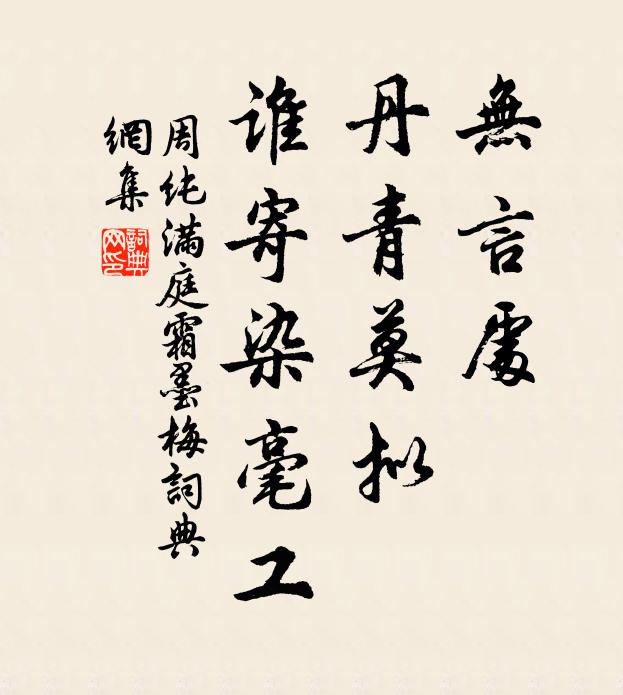 無言處
丹青莫拟
谁寄染毫工
周纯满庭霜墨梅詞典
網集
詞典网印